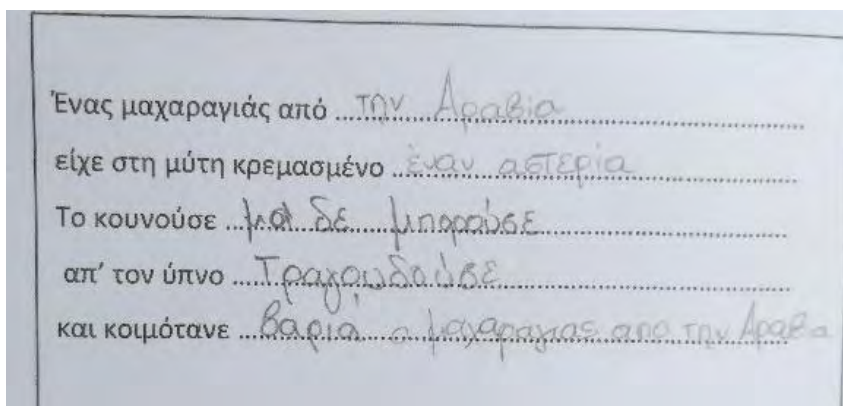 Ένας μαχαραγιάς από ... την Αραβία
είχε στη μύτη κρεμασμένο ... έναν αστερία
Το κουνούσε ... μα δε μπορούσε
απ' τον ύπνο ... Τραγουδούσε
και κοιμότανε ... βαριά ο μαχαραγιας απο την Αραβα